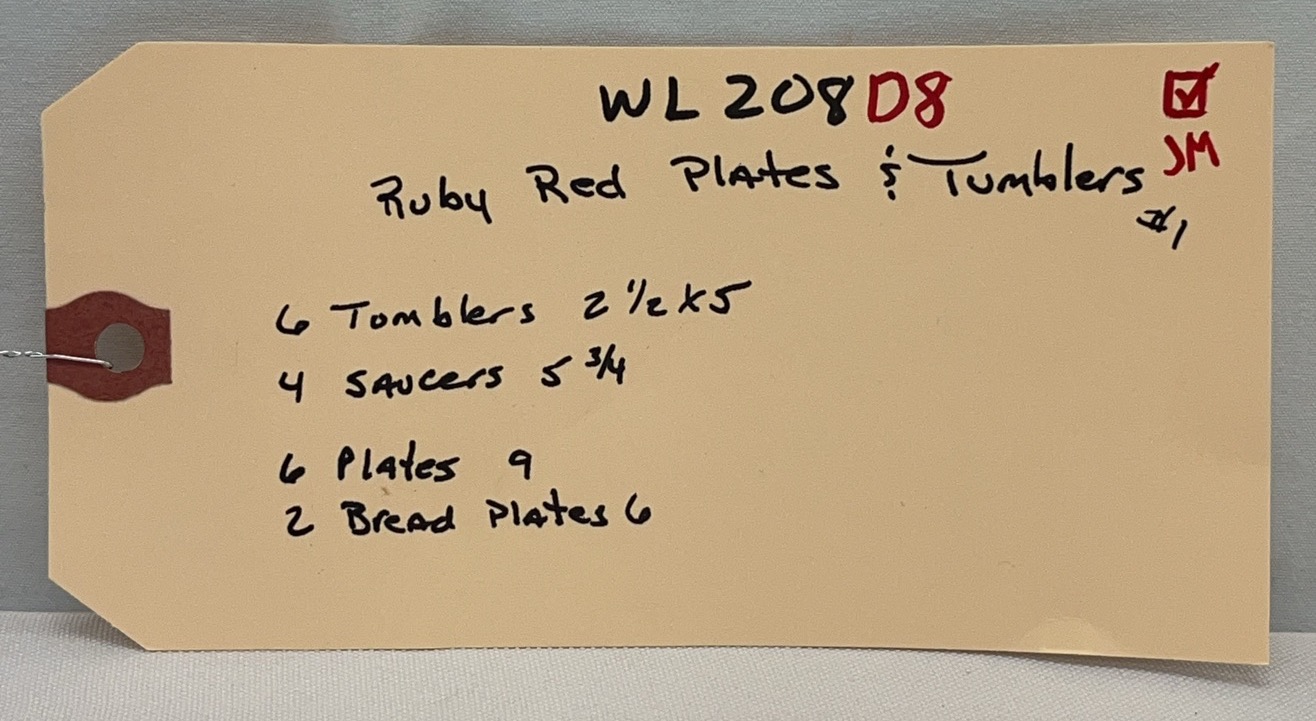 WL208D8
☑
JM
Ruby Red Plates & Tumblers
#1
6 Tomblers 2 1/2 x 5
4 Saucers 5 3/4
6 Plates 9
2 Bread Plates 6